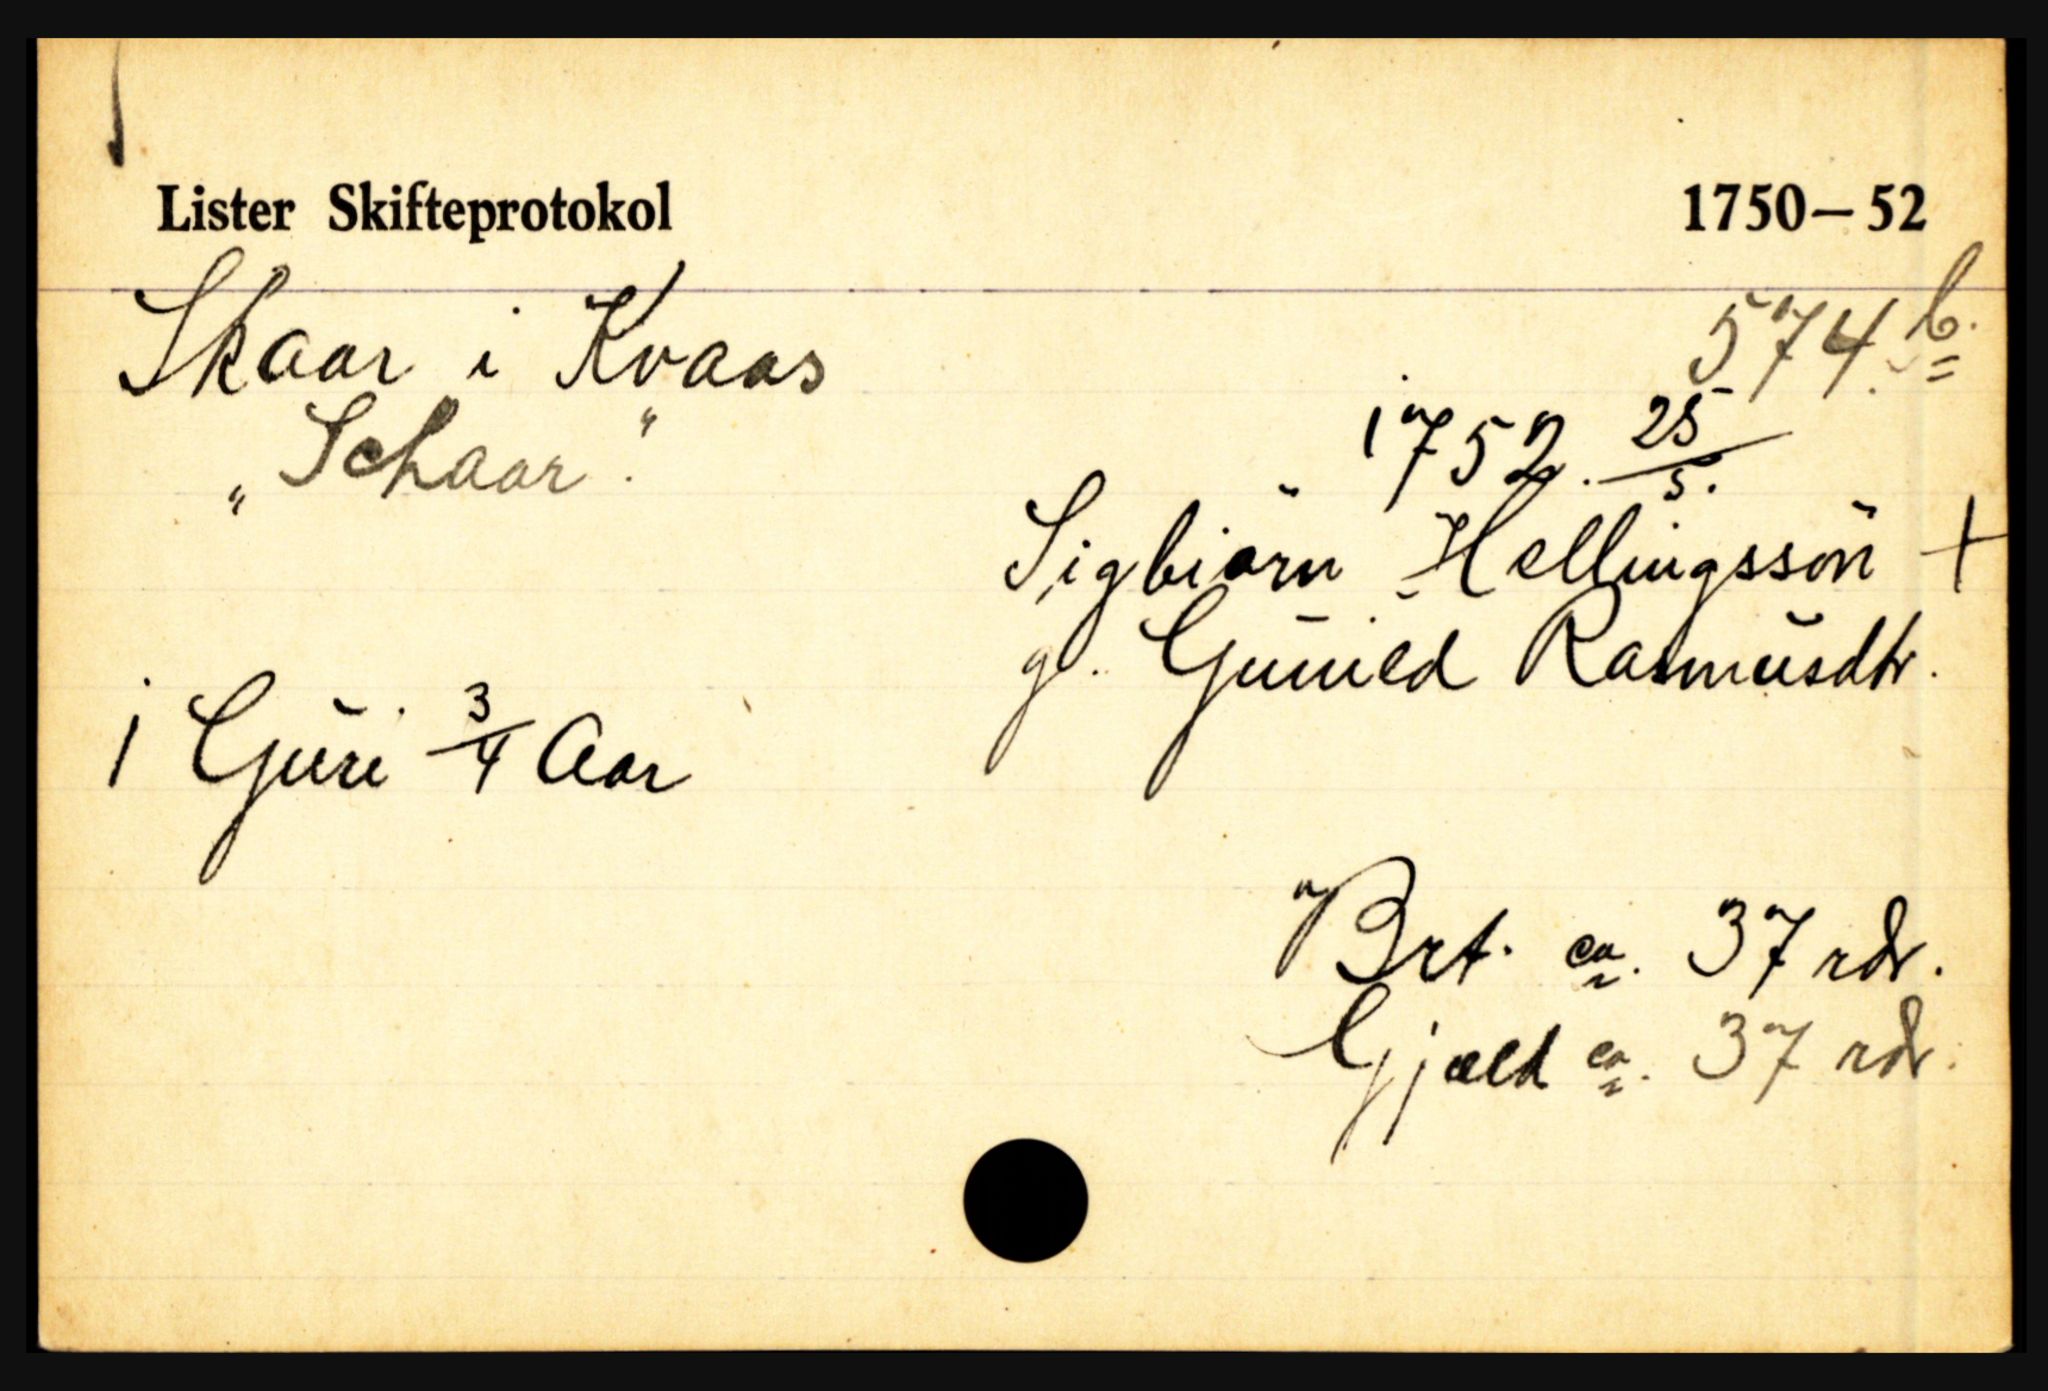 Lister Skifteprotokol 1750–52
Skaar i Kvaas 574 b.
„Schaar“. 1752. 25/5.
Sigbiörn Hellingssön +
g. Gunild Rasmusdtr.
1 Guri 3/4 Aar
Brt. ca. 37 rdr.
Gjæld ca. 37 rdr.